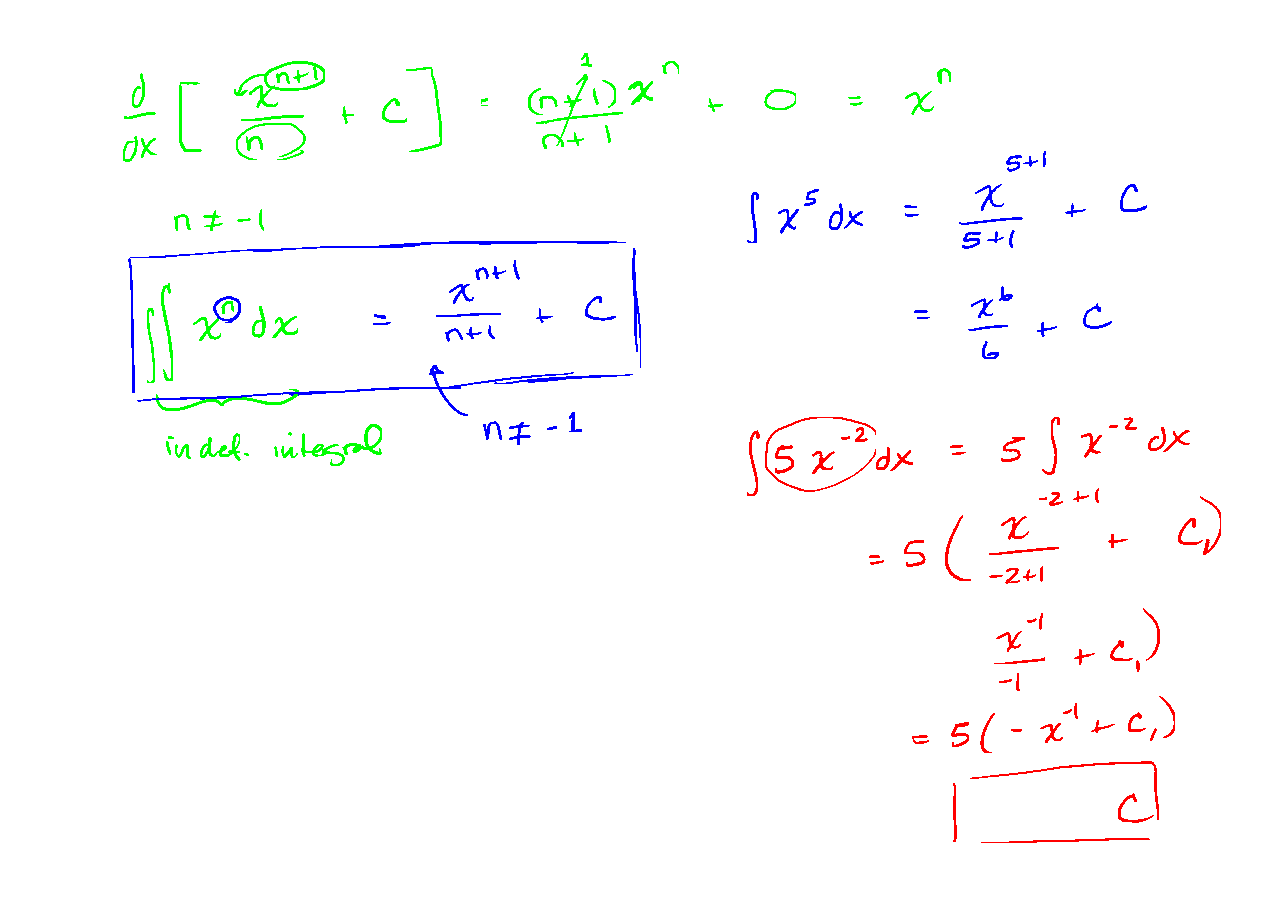 d/dx [ x^(n+1)/n + C ] = (n+1)x^n/(n+1) + 0 = x^n
1
n ≠ -1
∫∫ x^n dx = x^(n+1)/(n+1) + C
n ≠ -1
indef. integral
∫ x^5 dx = x^(5+1)/(5+1) + C
= x^6/6 + C
∫ 5 x^(-2) dx = 5 ∫ x^(-2) dx
= 5 ( x^(-2+1)/(-2+1) + C₁)
x^(-1)/(-1) + C₁)
= 5 ( - x^(-1) + C₁)
C